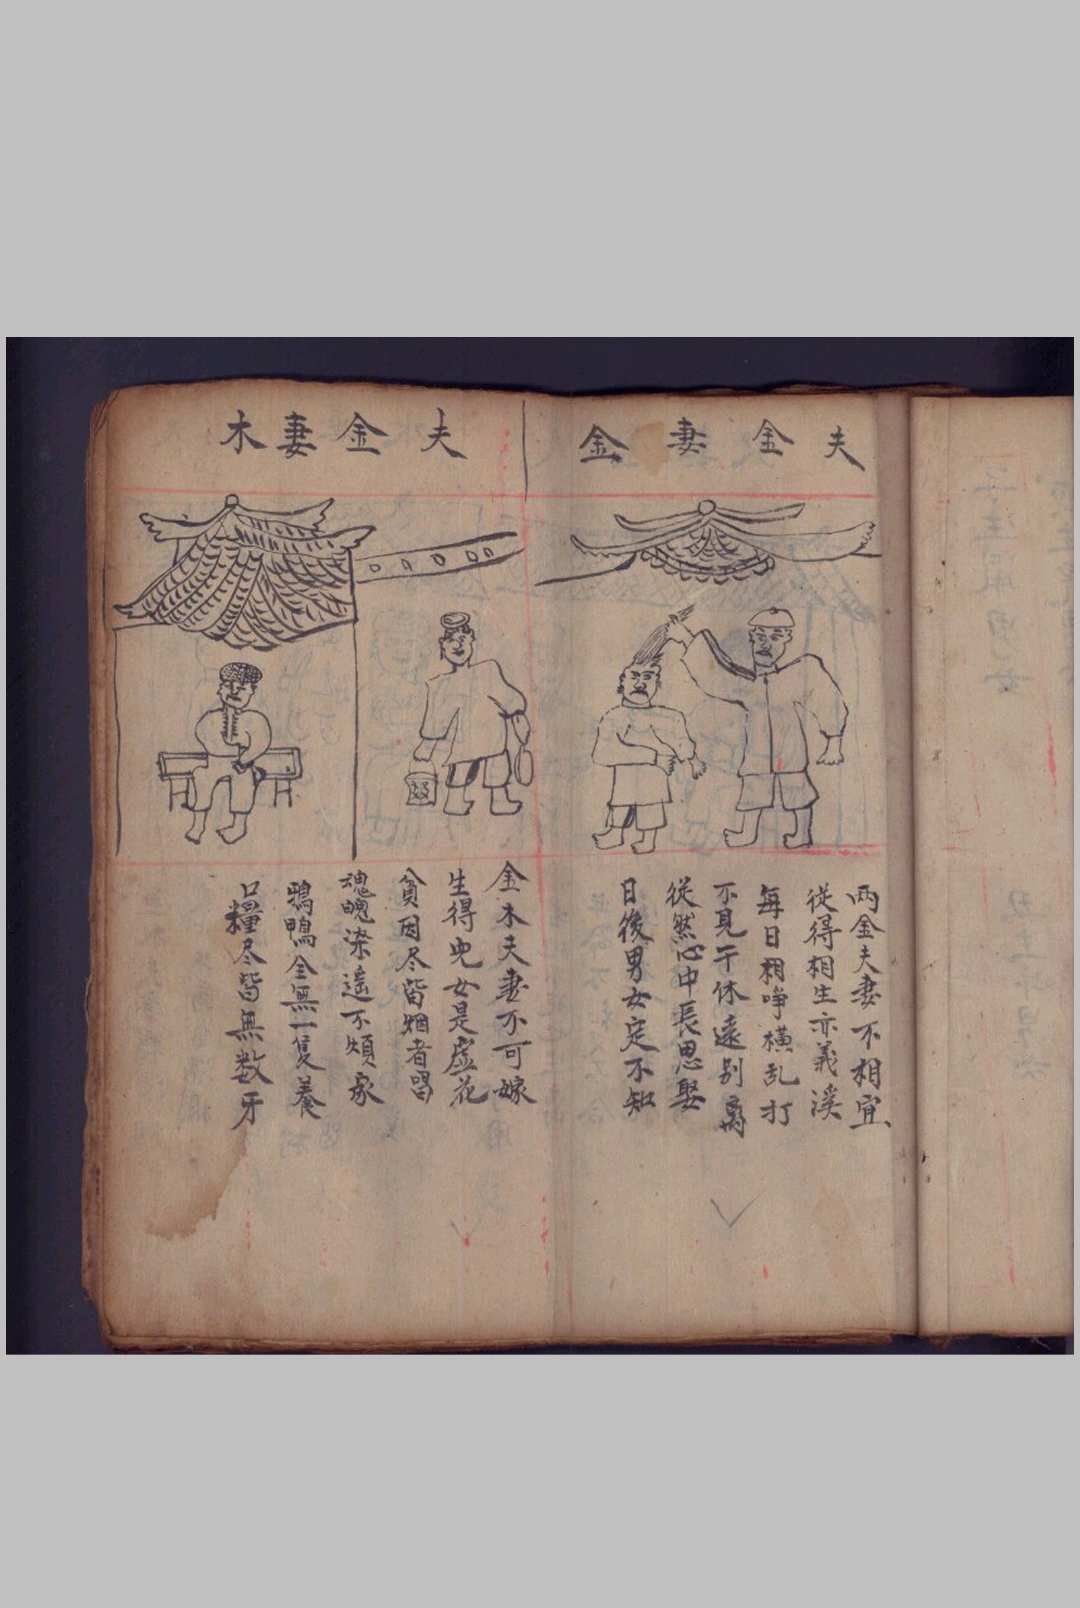 夫金妻金
兩金夫妻不相宜
從得相生亦義溪
每日相爭橫乱打
不見干休遠别离
從然心中長思娶
日後男女定不知
夫金妻木
金木夫妻不可嫁
生得兒女是虛花
貧因尽皆烟者習
魂魄染遥不煩家
鵝鴨全無一隻養
口糧尽皆無数牙